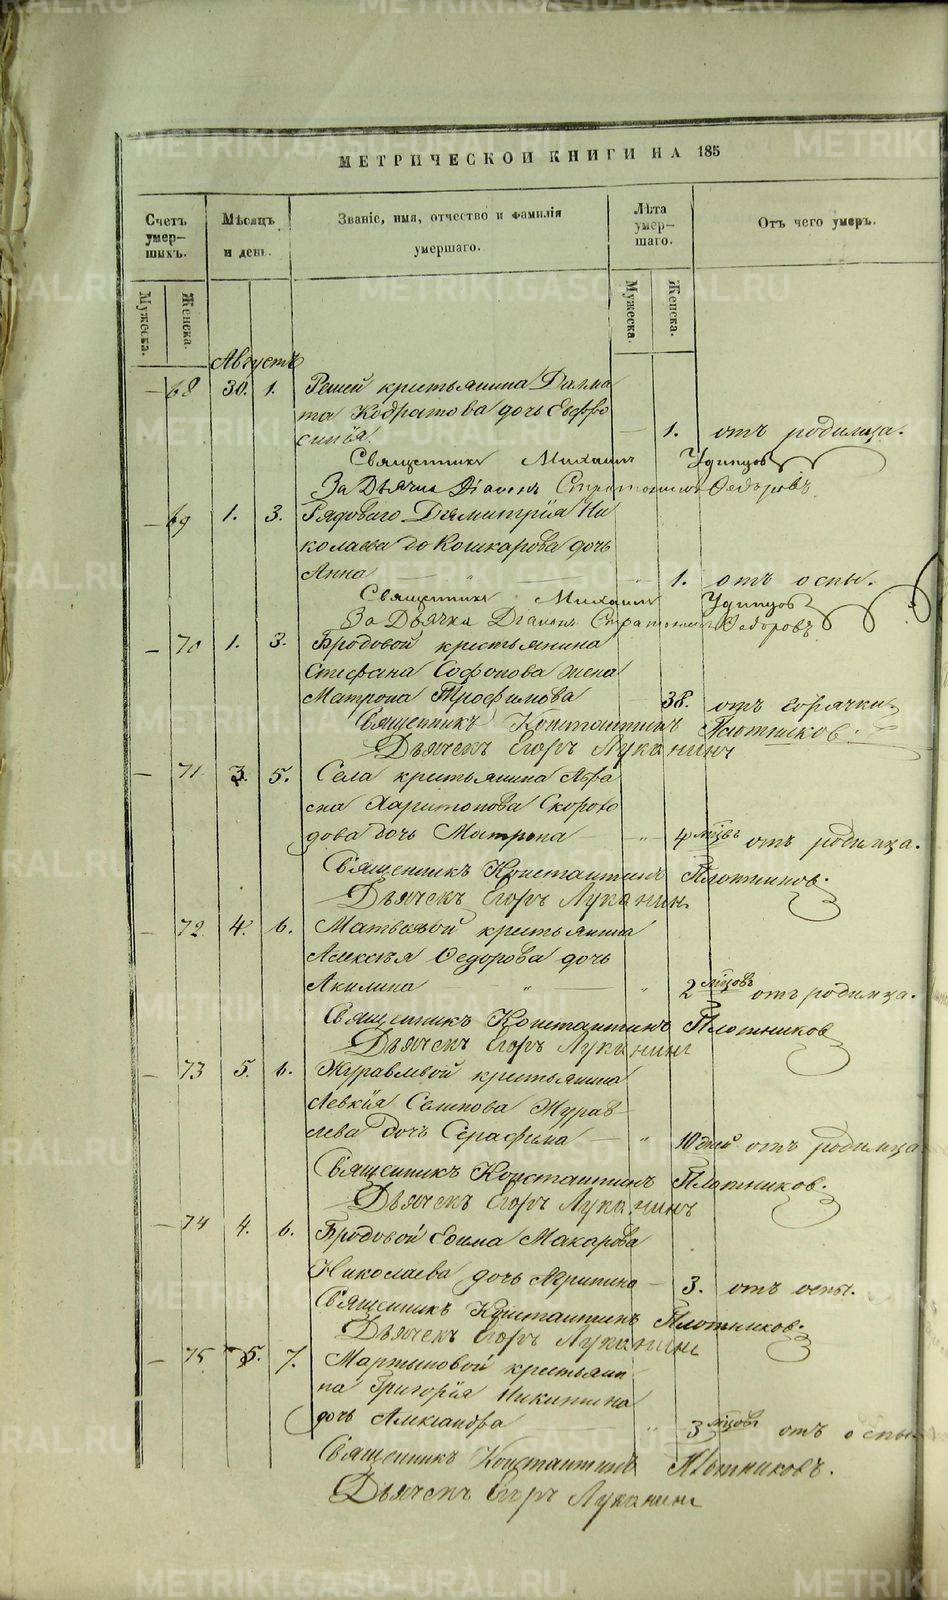 METRIKI.GASO-URAL.RU
МЕТРИЧЕСКОИ КНИГИ НА 185
Счетъ умер-шихъ.
Мѣсяцъ и день.
Званіе, имя, отчество и фамилія умершаго.
Лѣта умер-шаго.
Отъ чего умеръ.
Мужеска.
Женска.
Мужеска.
Женска.
Августъ
68 30. 1. крестьянина Далма
та Кодратова дочь Евфро
синія. 1. отъ родимца.
Священникъ Михаилъ Удинцовъ
За Дьячка Діаконъ Стратоникъ Федоровъ
69 1. 3. Рядоваго Димитрія Ни
колаева Кошкарова дочь
Анна " 1. отъ оспы.
Священникъ Михаилъ Удинцовъ
За Дьячка Діаконъ Стратоникъ Федоровъ
70 1. 3. Бродовой крестьянина
Стефана Софонова жена
Матрона Трофимова 38. отъ горячки
Священникъ Константинъ Плотниковъ.
Дьячекъ Егоръ Луканинъ
71 3. 5. Села крестьянина
Харитонова Скорохо
дова дочь Матрона " 4 мѣцвъ отъ родимца.
Священникъ Константинъ Плотниковъ.
Дьячекъ Егоръ Луканинъ
72 4. 6. крестьянина
Алексѣя Федорова дочь
Акилина " " 2 мѣцовъ отъ родимца.
Священникъ Константинъ Плотниковъ
Дьячекъ Егоръ Луканинъ
73 5. 6. Журавлевой крестьянина
Левкія Журав
лева дочь Серафима " 10 дней отъ родимца
Священникъ Константинъ Плотниковъ.
Дьячекъ Егоръ Луканинъ
74 4. 6. Бродовой Макарова
Николаева дочь Агрипина 3. отъ оспы.
Священникъ Константинъ Плотниковъ.
Дьячекъ Егоръ Луканинъ
75 5. 7. Мартыновой крестьяни
на Григорія Никитина
дочь Александра " 3 мѣцовъ отъ оспы
Священникъ Константинъ Плотниковъ.
Дьячекъ Егоръ Луканинъ
METRIKI.GASO-URAL.RU